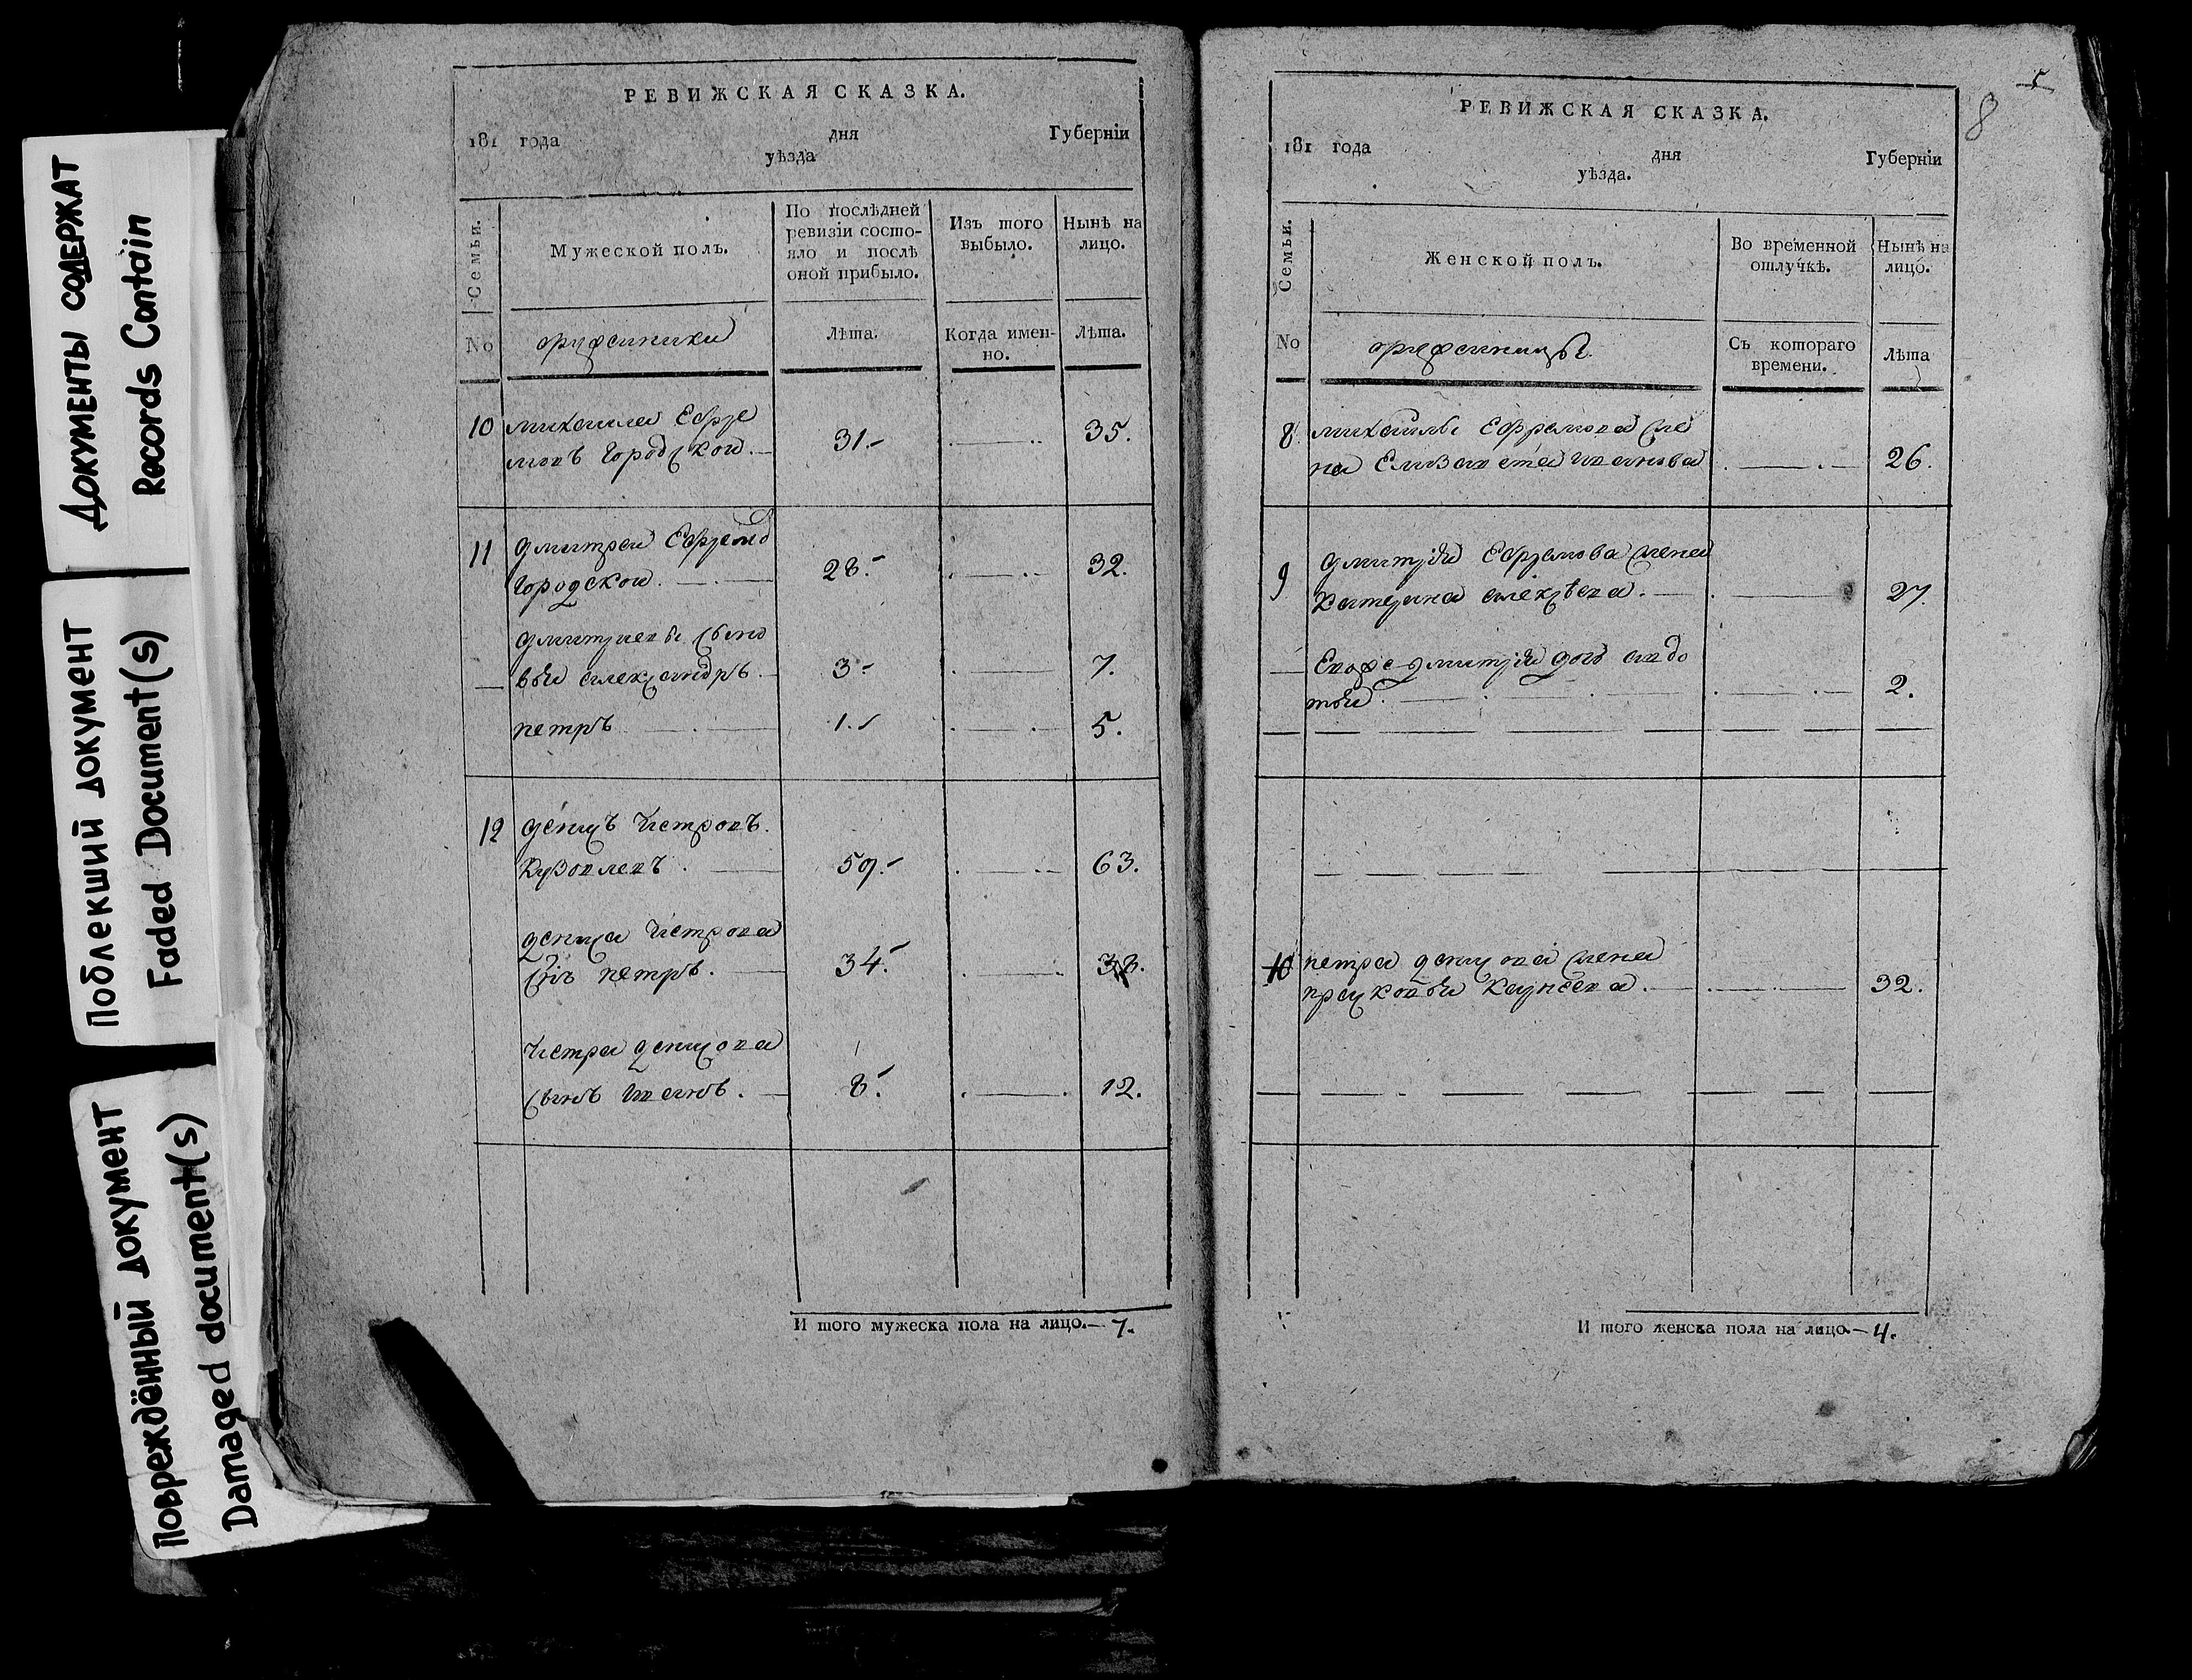 Документы содержат
Records Contain
Поблекший документ
Faded Document(s)
Повреждённый документ
Damaged document(s)
РЕВИЖСКАЯ СКАЗКА.
181 года дня Губернiи
уѣзда
Семьи.
Мужеской полъ.
По послѣдней
ревизiи состо-
яло и послѣ
оной прибыло.
Изъ того
выбыло.
Нынѣ на
лицо.
No
Лѣта.
Когда имен-
но.
Лѣта.
10 михаила Ефре
мовъ Городской. 31. 35.
11 дмитрей Ефремо
Городской. 28. 32.
дмитриевы сыно
вьи александръ. 3. 7.
петръ 1. 5.
12 денисъ Петровъ.
59. 63.
дениса Петрова
сынъ петръ. 34. 38.
Петра денисова
сынъ иванъ. 8. 12.
И того мужеска пола на лицо. 7.
5
8
РЕВИЖСКАЯ СКАЗКА.
181 года дня Губернiи
уѣзда.
Семьи.
Женской полъ.
Во временной
отлучкѣ.
Нынѣ на
лицо.
No
Съ котораго
времени.
Лѣта
8 михаилы Ефремова же
на Елизавета иванова 26.
9 дмитрiя Ефремова жена
Катерина алексѣева. 27.
дмитрiя
2.
10 петра денисова жена
32.
И того женска пола на лицо. 4.